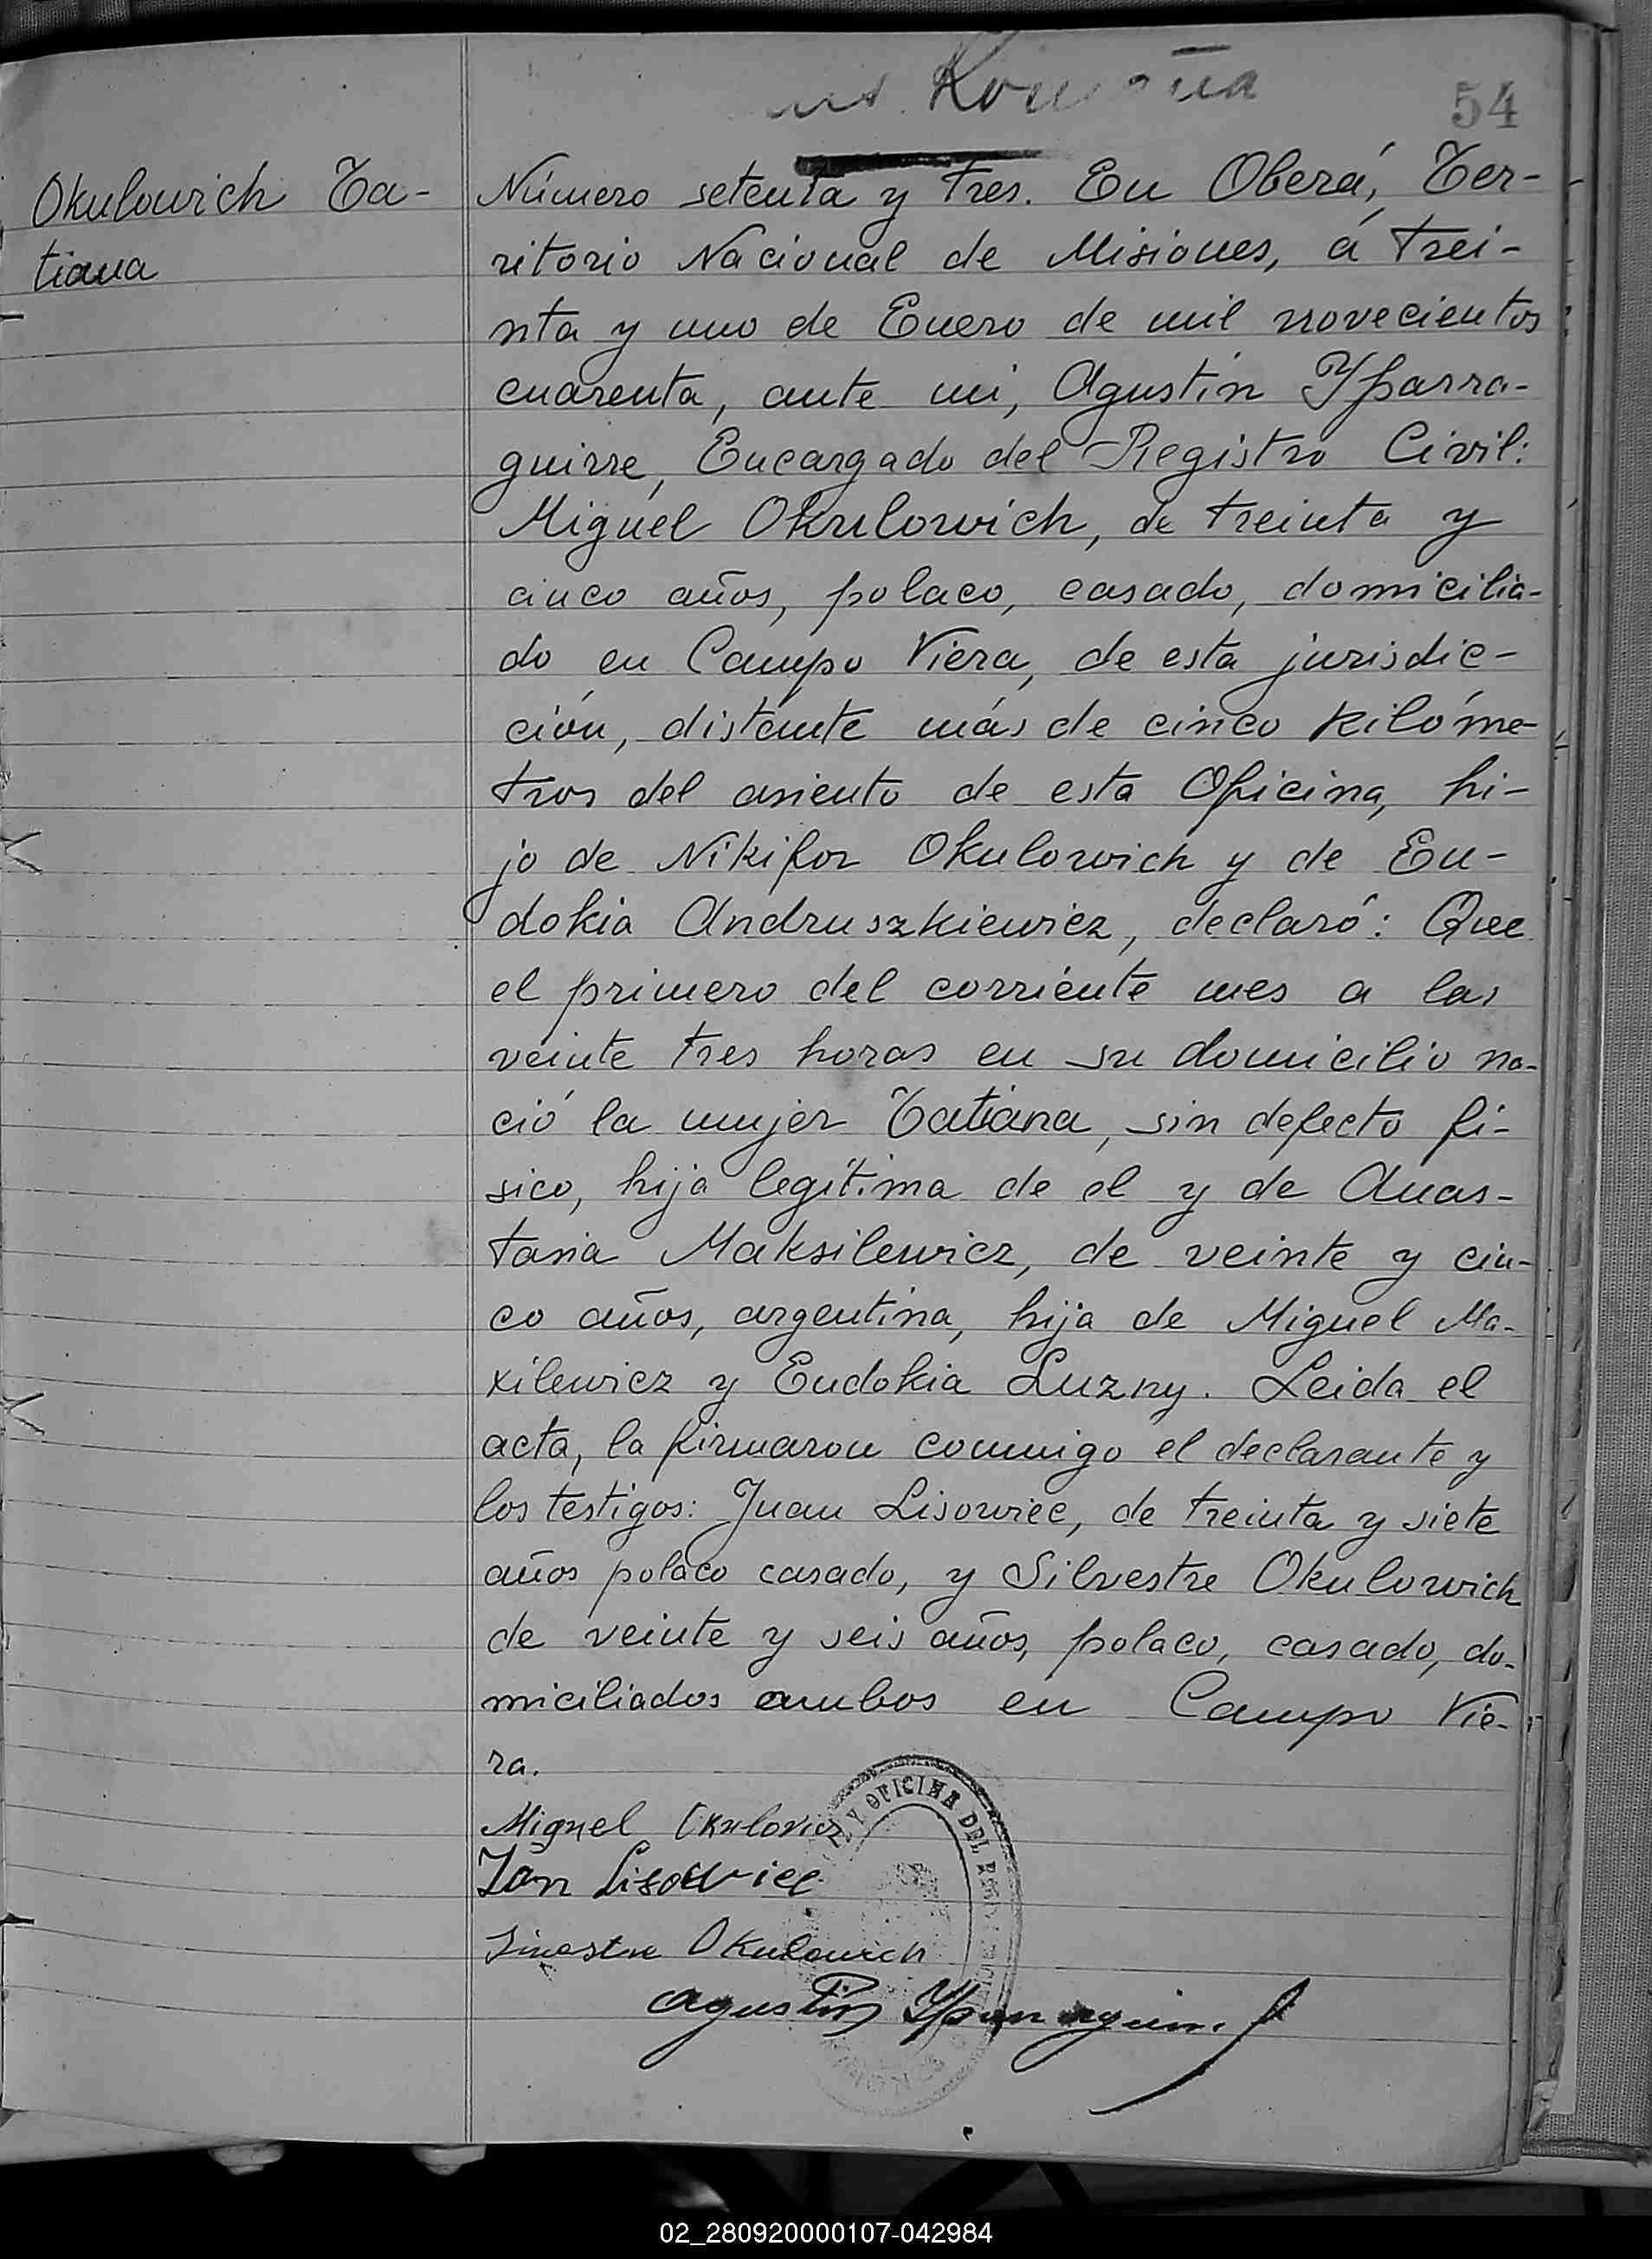 54
Okulowich Ta-
tiana
Número setenta y tres. En Oberá, Ter-
ritorio Nacional de Misiones, á trei-
nta y uno de Enero de mil novecientos
cuarenta, ante mi, Agustín Yparra-
guirre, Encargado del Registro Civil:
Miguel Okulowich, de treinta y
cinco años, polaco, casado, domicilia-
do en Campo Viera, de esta jurisdic-
ción, distante más de cinco kilóme-
tros del asiento de esta Oficina, hi-
jo de Nikifor Okulowich y de Eu-
dokia Andruszkiewicz, declaró: Que
el primero del corriente mes a las
veinte tres horas en su domicilio na-
ció la mujer Tatiana, sin defecto fí-
sico, hija legítima de el y de Anas-
tasia Maksilewicz, de veinte y cin-
co años, argentina, hija de Miguel Ma-
xilewicz y Eudokia Luzny. Leida el
acta, la firmaron conmigo el declarante y
los testigos: Juan Lisowiec, de treinta y siete
años polaco casado, y Silvestre Okulowich
de veinte y seis años, polaco, casado, do-
miciliados ambos en Campo Vie-
ra.
Miguel Okulovicz
Jan Lisowiec
Okulowich
Agustín Yparraguirre
Y OFICINA DEL
02_280920000107-042984